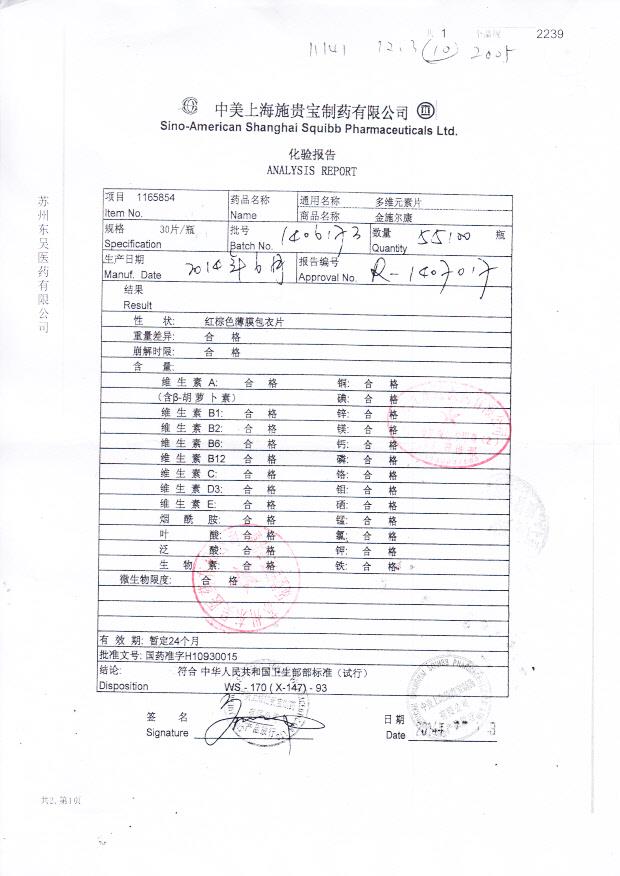 共 1
2239
2005
中美上海施贵宝制药有限公司
Sino-American Shanghai Squibb Pharmaceuticals Ltd.
化验报告
ANALYSIS REPORT
苏州东吴医药有限公司
项目 1165854 药品名称 通用名称 多维元素片
Item No. Name 商品名称 金施尔康
规格 30片/瓶 批号 1406173 数量 55100 瓶
Specification Batch No. Quantity
生产日期 2014年6月 报告编号 R-1407017
Manuf. Date Approval No.
结果
Result
性 状: 红棕色薄膜包衣片
重量差异: 合 格
崩解时限: 合 格
含 量:
维 生 素 A: 合 格 铜: 合 格
(含β-胡 萝 卜 素) 碘: 合 格
维 生 素 B1: 合 格 锌: 合 格
维 生 素 B2: 合 格 镁: 合 格
维 生 素 B6: 合 格 钙: 合 格
维 生 素 B12 合 格 磷: 合 格
维 生 素 C: 合 格 铬: 合 格
维 生 素 D3: 合 格 钼: 合 格
维 生 素 E: 合 格 硒: 合 格
烟 酰 胺: 合 格 锰: 合 格
叶 酸: 合 格 氯: 合 格
泛 酸: 合 格 钾: 合 格
生 物 素: 合 格 铁: 合 格
微生物限度: 合 格
有 效 期: 暂定24个月
批准文号: 国药准字H10930015
结论: 符合 中华人民共和国卫生部部标准（试行）
Disposition WS - 170 ( X-147) - 93
签 名 日 期
Signature Date 2014
共2, 第1页